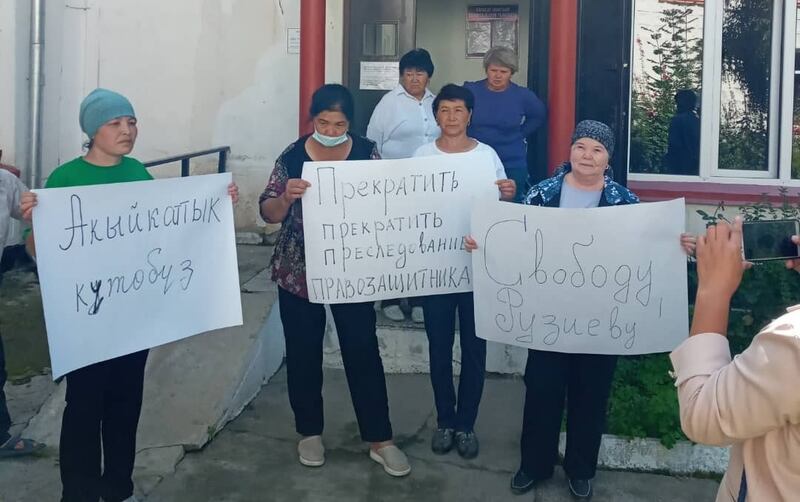 Акыйкатык
кутобуз
Прекратить
прекратить
преследование
правозащитника
Свободу
Рузиеву!